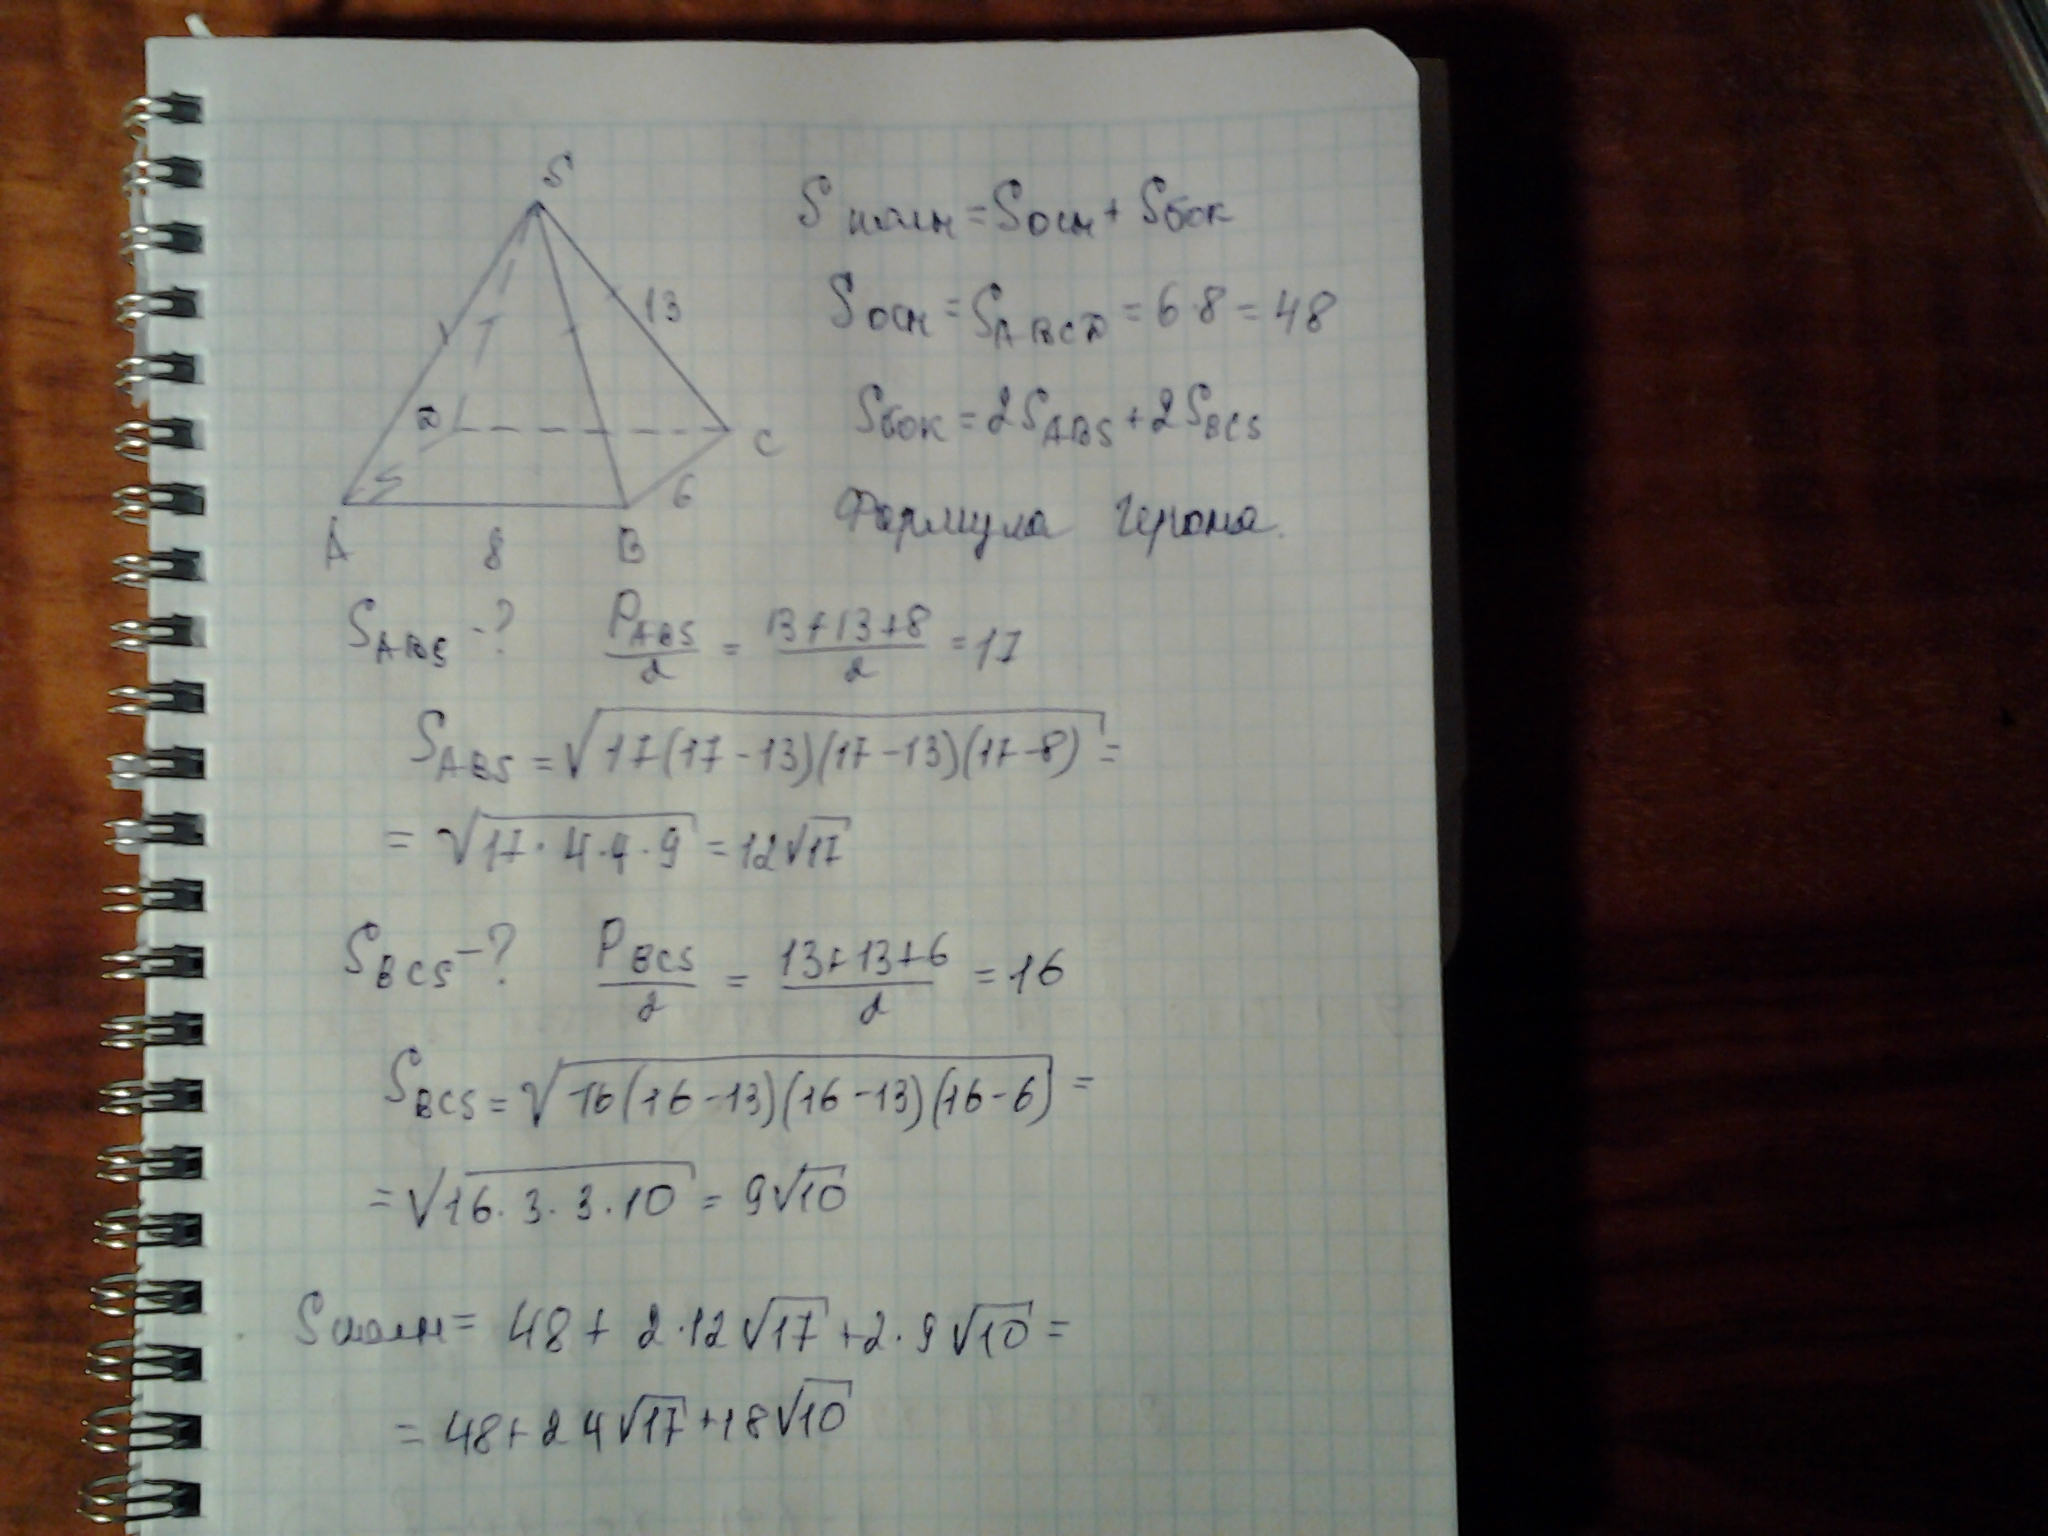 S
13
D
C
6
A 8 B
Sполн = Sосн + Sбок
Sосн = S_ABCD = 6·8 = 48
Sбок = 2S_ABS + 2S_BCS
Формула Герона.
S_ABS - ? P_ABS/2 = (13+13+8)/2 = 17
S_ABS = √(17(17-13)(17-13)(17-8)) =
= √(17·4·4·9) = 12√17
S_BCS - ? P_BCS/2 = (13+13+6)/2 = 16
S_BCS = √(16(16-13)(16-13)(16-6)) =
= √(16·3·3·10) = 9√10
Sполн = 48 + 2·12√17 + 2·9√10 =
= 48 + 24√17 + 18√10